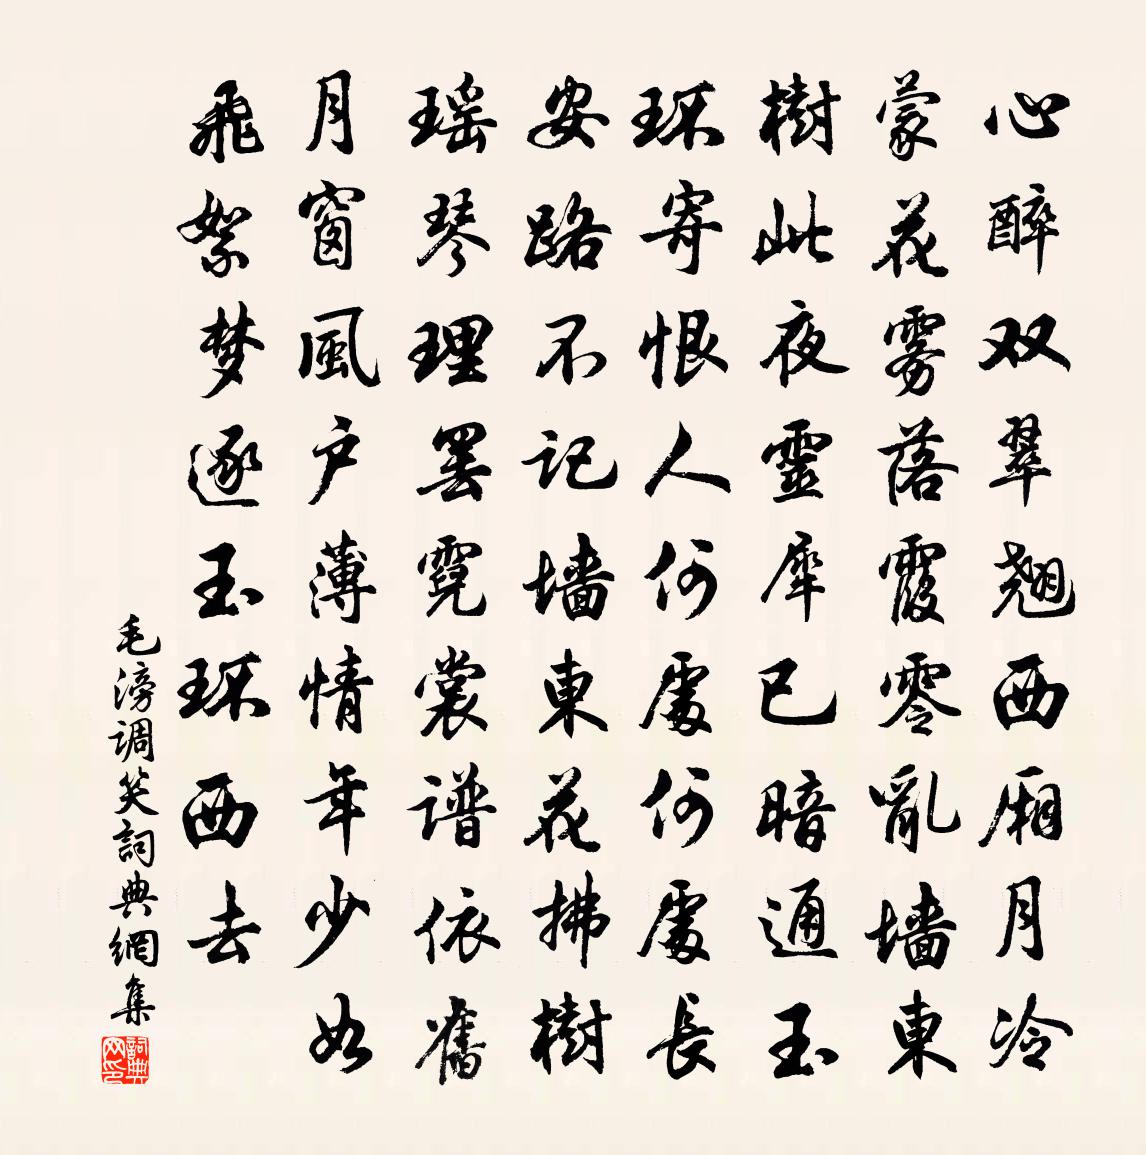 心醉双翠翘西厢月冷
蒙花雾落霞零乱墙東
樹此夜靈犀已暗通玉
环寄恨人何處何處長
安路不记墙東花拂樹
瑶琴理罢霓裳谱依舊
月窗風户薄情年少如
飛絮梦逐玉环西去
毛滂调笑詞典網集
詞典网印